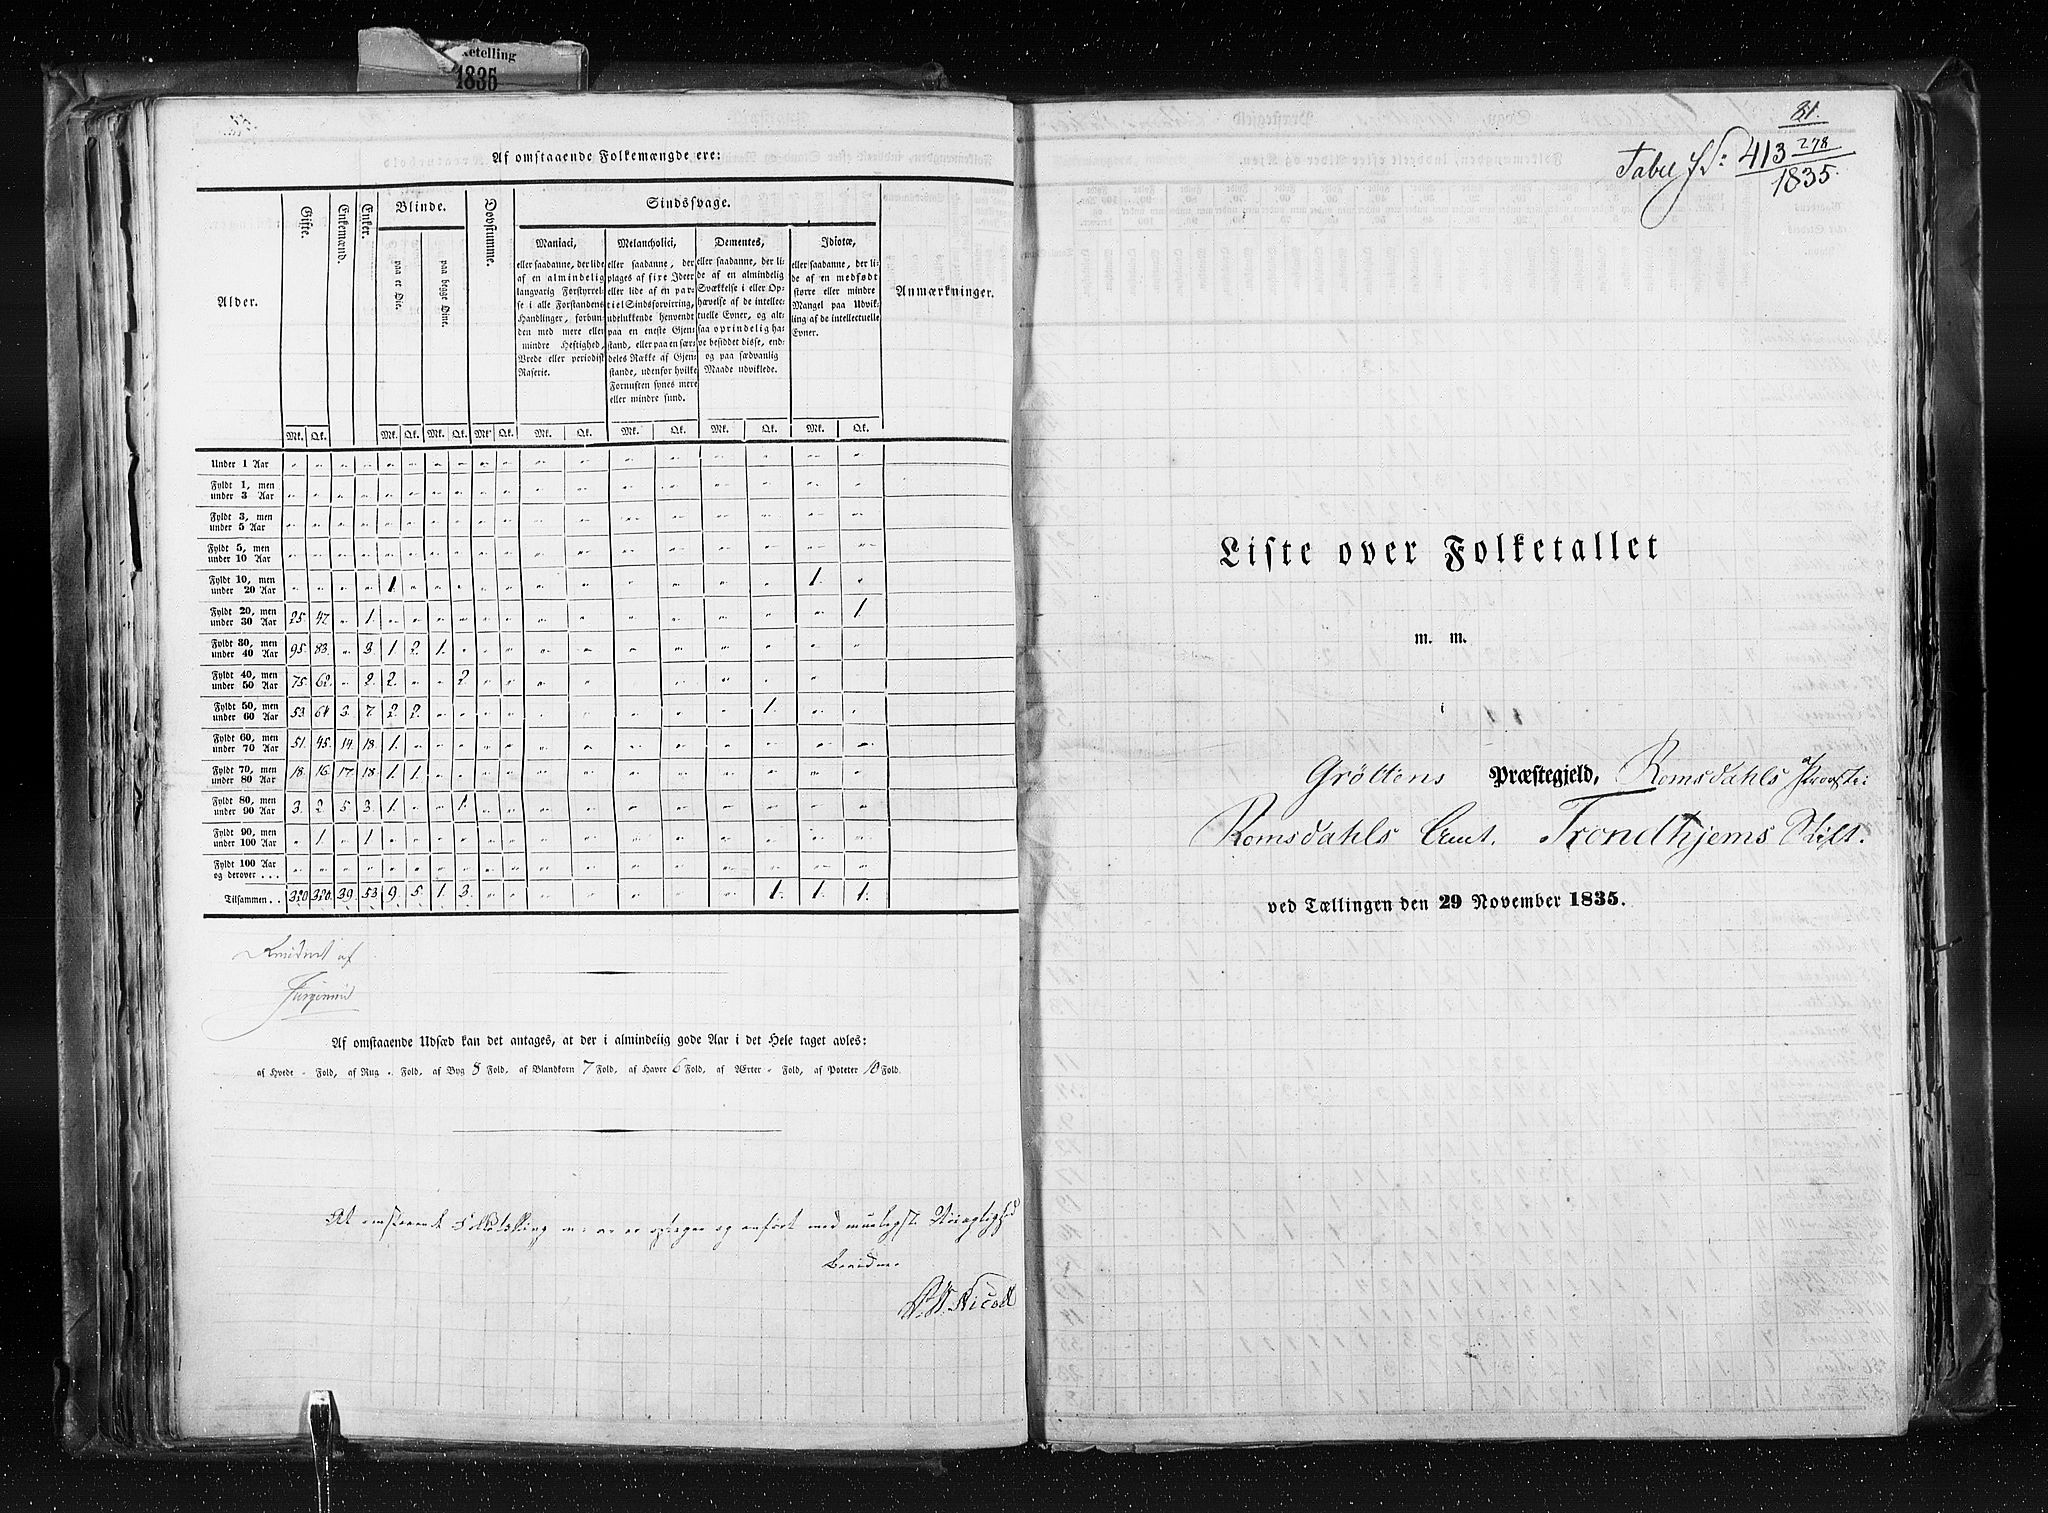 ketelling
1835
Af omstaaende Folkemængde ere:
Alder.
Gifte.
Enkemænd.
Enker.
Blinde.
paa et Øie.
paa begge Øine.
Døvstumme.
Sindssvage.
Maniaci,
eller saadanne, der lide
af en almindelig
langvarig Forstyrrel-
se i alle Forstandens
Handlinger, forbun-
den med mere eller
mindre Heftighed,
Vrede eller periodisk
Raserie.
Melancholici,
eller saadanne, der
plages af fixe Ideer
eller lide af en par-
tiel Sindsforvirring,
udelukkende henvendt
paa en eneste Gjen-
stand, eller paa en sær-
deles Række af Gjen-
stande, udenfor hvilke
Fornuften synes mere
eller mindre sund.
Dementes,
eller saadanne, der li-
de af en almindelig
Svækkelse i eller Op-
hævelse af de intellec-
tuelle Evner, og alt-
saa oprindelig ha-
ve besiddet disse, end-
og paa sædvanlig
Maade udviklede.
Idiotæ,
eller saadanne, der li-
de af en medfødt
større eller mindre
Mangel paa Udvik-
ling af de intellectuelle
Evner.
Anmærkninger.
Mk. Qk. Mk. Qk. Mk. Qk. Mk. Qk. Mk. Qk. Mk. Qk. Mk. Qk. Mk. Qk.
Under 1 Aar
Fyldt 1, men
under 3 Aar
Fyldt 3, men
under 5 Aar
Fyldt 5, men
under 10 Aar
Fyldt 10, men
under 20 Aar 1. 1.
Fyldt 20, men
under 30 Aar 25. 47. 1. 1.
Fyldt 30, men
under 40 Aar 95. 83. 3. 1. 2. 1.
Fyldt 40, men
under 50 Aar 75. 62. 2. 2. 2.
Fyldt 50, men
under 60 Aar 53. 61. 3. 7. 2. 2. 1.
Fyldt 60, men
under 70 Aar 51. 45. 14. 18. 1.
Fyldt 70, men
under 80 Aar 18. 16. 17. 18. 1. 1.
Fyldt 80, men
under 90 Aar 3. 2. 5. 3. 1. 1.
Fyldt 90, men
under 100 Aar 1. 1.
Fyldt 100 Aar
og derover . . .
Tilsammen . . 320 320. 39. 53. 9. 5. 1. 3. 1. 1. 1.
Revideret af
Af omstaaende Udsæd kan det antages, at der i almindelig gode Aar i det Hele taget avles:
af Hvede - Fold, af Rug - Fold, af Byg 8 Fold, af Blandkorn 7 Fold, af Havre 6 Fold, af Ærter - Fold, af Poteter 10 Fold.
At omstaaende Folketælling er optagen og anført med muligste Nøiagtighed
Bevidner
81.
Tabel No: 413 278
1835.
Liste over Folketallet
m. m.
i
Grøttens Præstegjeld, Romsdahls Provstie
Romsdahls Amt. Trondhjems Stift.
ved Tællingen den 29 November 1835.